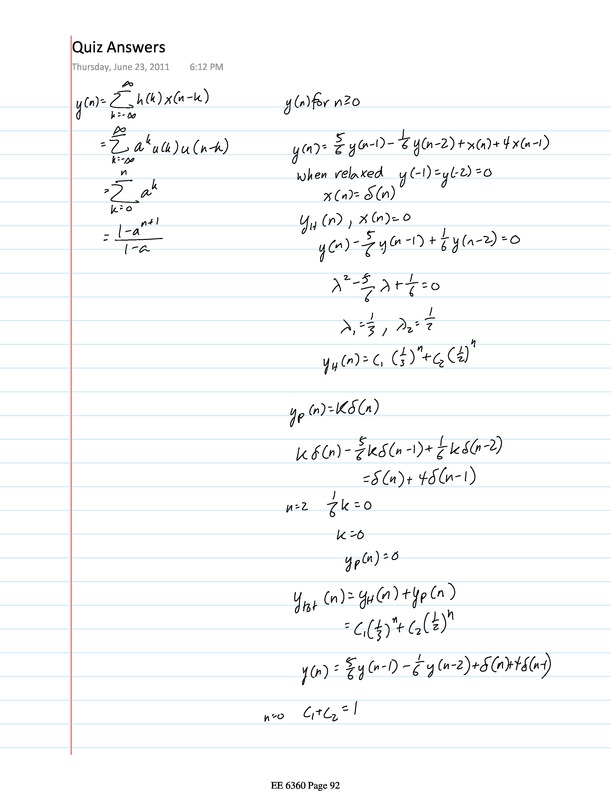 Quiz Answers
Thursday, June 23, 2011 6:12 PM
y(n)= ∞∑k=-∞ h(k) x(n-k)
= ∞∑k=-∞ a^k u(k) u(n-k)
= n∑k=0 a^k
= (1-a^(n+1))/(1-a)
y(n) for n≥0
y(n)= 5/6 y(n-1) - 1/6 y(n-2) + x(n) + 4x(n-1)
when relaxed y(-1)=y(-2)=0
x(n)=δ(n)
y_H(n), x(n)=0
y(n) - 5/6 y(n-1) + 1/6 y(n-2)=0
λ² - 5/6 λ + 1/6 = 0
λ₁=1/3, λ₂=1/2
y_H(n)=C₁(1/3)^n + C₂(1/2)^n
y_p(n)=kδ(n)
kδ(n) - 5/6 kδ(n-1) + 1/6 kδ(n-2)
=δ(n)+4δ(n-1)
n=2 1/6 k=0
k=0
y_p(n)=0
y_tot(n)=y_H(n)+y_p(n)
=C₁(1/3)^n + C₂(1/2)^n
y(n)= 5/6 y(n-1) - 1/6 y(n-2)+δ(n)+4δ(n-1)
n=0 C₁+C₂=1
EE 6360 Page 92